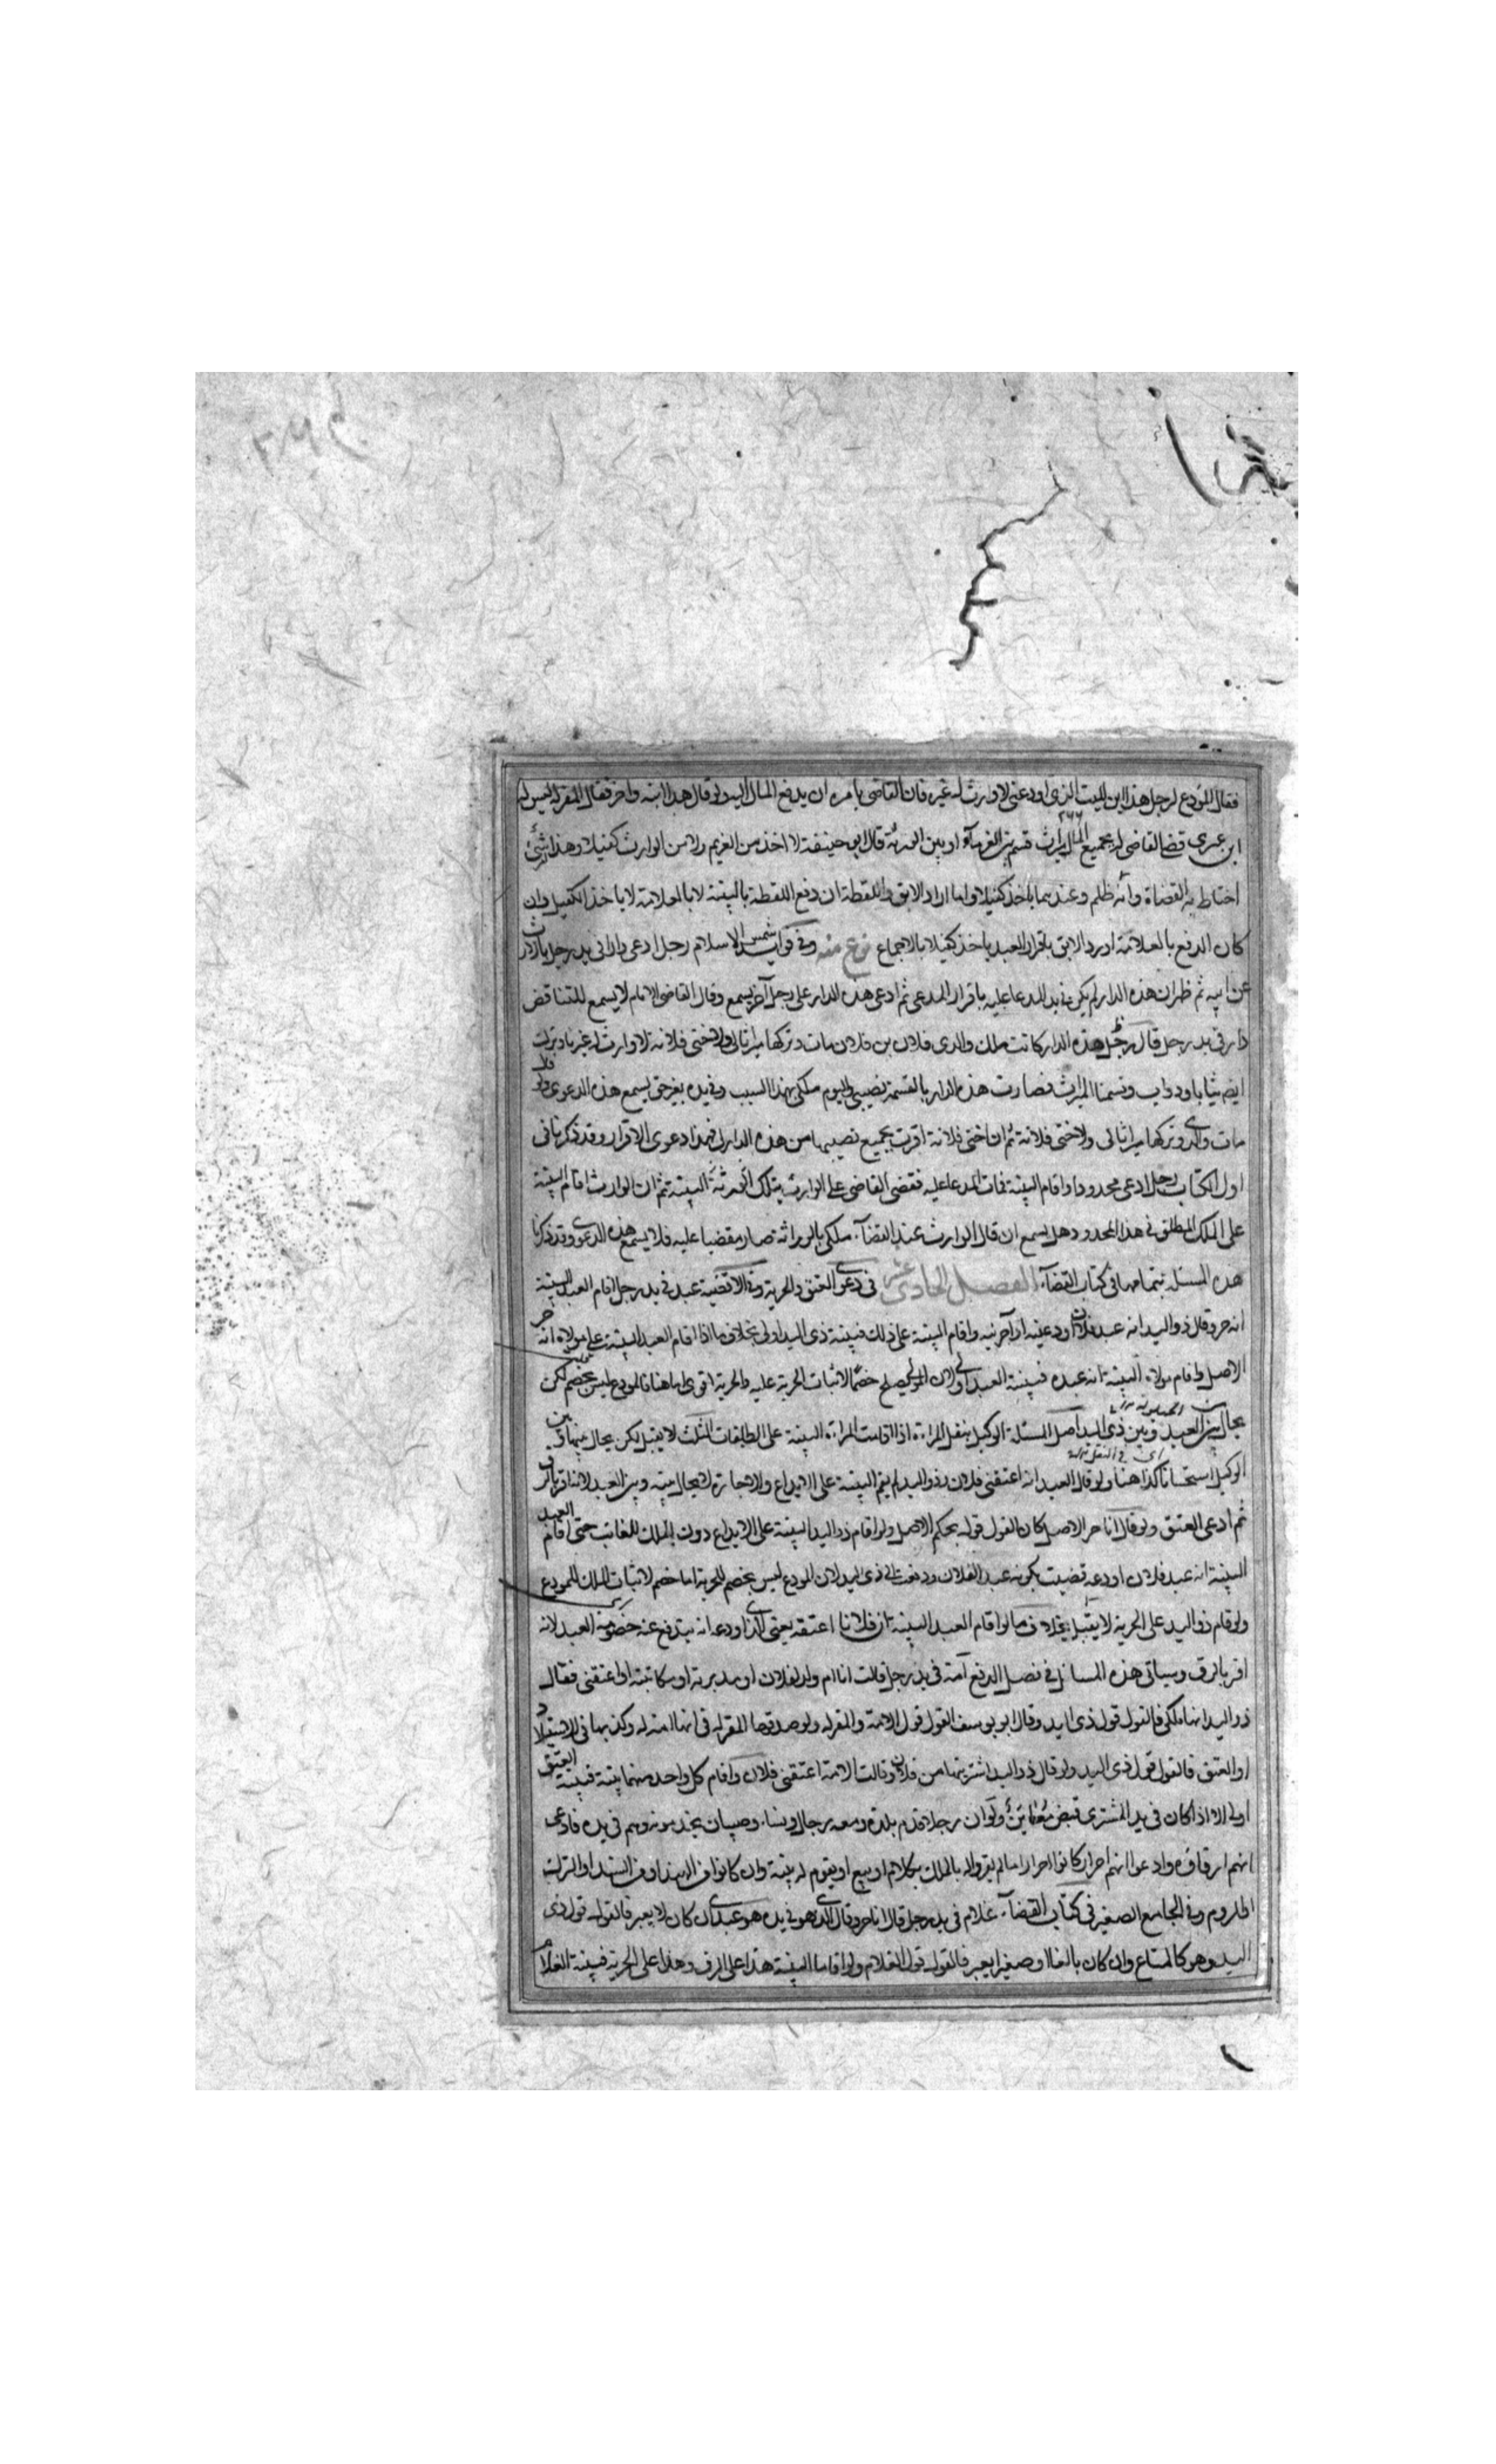 فقال المودع لرجل هذا ابن الميت الذي اودعني لا وارث له غيره فان القاضي يامره ان يدفع المال اليه ولو قال هذا ابنه واخر فقال المقر له ليس له
ابن غيري قضى القاضي له بجميع المال ميراث قسم بين الغرماء او بين الورثة قال ابو حنيفة لا اخذ من الغريم ولا من الوارث كفيلا وهذا شئ
احتاط به القضاة وانه ظلم وعندهما ياخذ كفيلا واما اراد الابق واللقطة ان دفع اللقطة بالبينة لا بالعلامة لا ياخذ الكفيل وان
كان الدفع بالعلامة او رد الابق باقرار العبد ياخذ كفيلا بالاجماع نوع منه وفي فوايد شمس الاسلام رجل ادعى دارا في يد رجل بالارث
عن ابيه ثم ظهر ان هذه الدار لم يكن في يد المدعا عليه باقرار المدعي ثم ادعى هذه الدار على رجل آخر يسمع وقال القاضي الامام لا يسمع للتناقض
دار في يد رجل قال رجل هذه الدار كانت ملك والدي فلان بن فلان مات وتركها ميراثا لي ولاختي فلانة لا وارث له غيرنا وترك
ايضا ثيابا ودواب وقسمنا الميراث فصارت هذه الدار بالقسمة نصيبي واليوم ملكي بهذا السبب وفي يده بغير حق يسمع هذه الدعوى ولو قال
مات والدي وتركها ميراثا لي ولاختي فلانة ثم ان اختي فلانة اقرت بجميع نصيبها من هذه الدار لي فهذا دعوى الاقرار وقد ذكرنا في
اول الكتاب رجل ادعى محدودا واقام البينة فمات المدعا عليه فقضى القاضي على الوارث بتلك البينة ثم ان الوارث اقام البينة
على الملك المطلق في هذا المحدود هل يسمع ان قال الوارث عند القضاء ملكي بالوراثة صار مقضيا عليه فلا يسمع هذه الدعوى وقد ذكرنا
هذه المسئلة بتمامها في كتاب القضاء الفصل الحادي عشر في دعوى العتق والحرية وفي الاقضية عبد في يد رجل اقام العبد البينة
انه حر وقال ذو اليد انه عبد فلان اودعنيه او آجرنيه واقام البينة على ذلك فبينة ذي اليد اولى بخلاف ما اذا اقام العبد البينة على مولاه انه حر
الاصل واقام مولاه البينة انه عبده فبينة العبد اولى لان المولى يصلح خصما لاثبات الحرية عليه والحرية اقوى اما هنا فالمودع ليس بخصم لكن
يحال بين العبد وبين ذي اليد اصل المسئلة الوكيل بنقل المراة اذا اقامت المراة البينة على الطلقات الثلث لا يقبل لكن يحال بينها وبين
الوكيل استحسانا كذا هنا ولو قال العبد انه اعتقني فلان وذو اليد لم يقم البينة على الايداع والاجارة لا يحال بينه وبين العبد لانه اقر بالرق
ثم ادعى العتق ولو قال انا حر الاصل كان القول قوله بحكم الاصل ولو اقام ذو اليد البينة على الايداع دون الملك للغائب حتى اقام العبد
البينة انه عبد فلان اودعه قضيت بكونه عبدا لفلان ودفعت الى ذي اليد لان المودع ليس بخصم للحرية اما خصم لاثبات الملك للمودع
ولو قام ذو اليد على الحرية لا يقبل بخلاف ما لو اقام العبد البينة ان فلانا اعتقه يعني الذي اودعه انه يندفع عنه خصومة العبد لانه
اقر بالرق وسياتي هذه المسائل في فصل الدفع امة في يد رجل قالت انا ام ولد لفلان او مدبرته او مكاتبته او اعتقني فقال
ذو اليد انها ملكي فالقول قول ذي اليد وقال ابو يوسف القول قول الامة والمقر له ولو صدقها المقر له في انها امته له وكذبها في الاستيلاد
او العتق فالقول قول ذي اليد ولو قال ذو اليد اشتريتها من فلان وقالت الامة اعتقني فلان واقام كل واحد منهما بينة فبينة العتق
اولى الا اذا كان في يد المشتري قبض معاين ولو ان رجلا قدم بلدة ومعه رجال ونساء وصبيان يخدمونه وهم في يده فادعى
انهم ارقاؤه وادعوا انهم احرار كانوا احرارا ما لم يقروا له بالملك بكلام او بيع او يقوم له بينة وان كانوا من الهند او من السند او الترك
او الروم وفي الجامع الصغير في كتاب القضاء غلام في يد رجل قال انا حر وقال الذي هو في يده هو عبدي ان كان لا يعبر فالقول قول ذي
اليد وهو كالمتاع وان كان بالغا او صغيرا يعبر فالقول قول الغلام ولو اقاما البينة هذا على الرق وهذا على الحرية فبينة الغلام